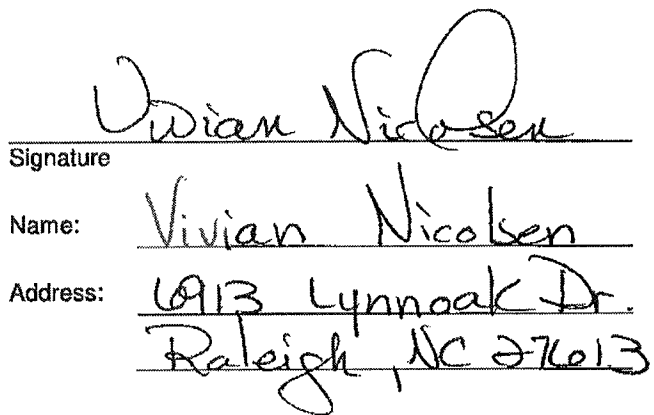 Vivian Nicolsen
Signature
Name: Vivian Nicolsen
Address: 6913 Lynnoak Dr.
Raleigh, NC 27613